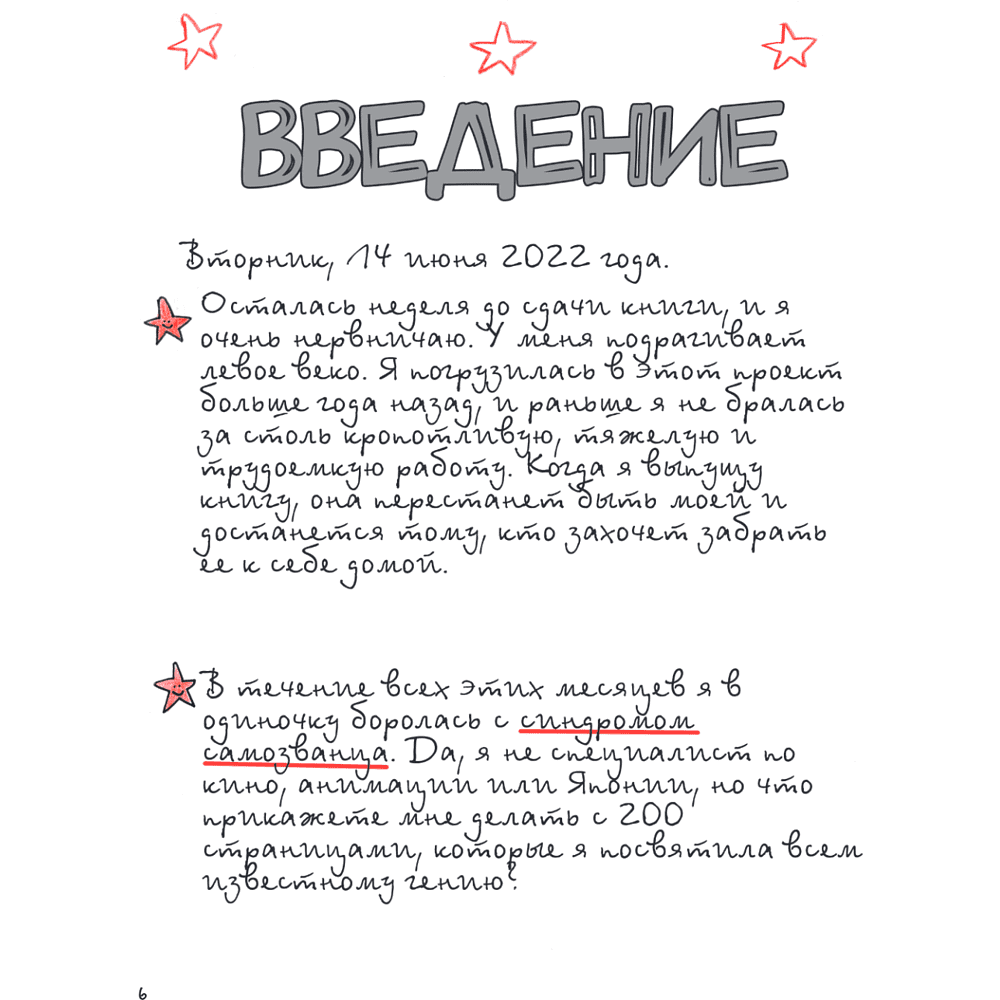 ВВЕДЕНИЕ
Вторник, 14 июня 2022 года.
Осталась неделя до сдачи книги, и я
очень нервничаю. У меня подрагивает
левое веко. Я погрузилась в этот проект
больше года назад, и раньше я не бралась
за столь кропотливую, тяжелую и
трудоемкую работу. Когда я выпущу
книгу, она перестанет быть моей и
достанется тому, кто захочет забрать
ее к себе домой.
В течение всех этих месяцев я в
одиночку боролась с синдромом
самозванца. Да, я не специалист по
кино, анимации или Японии, но что
прикажете мне делать с 200
страницами, которые я посвятила всем
известному гению?
6